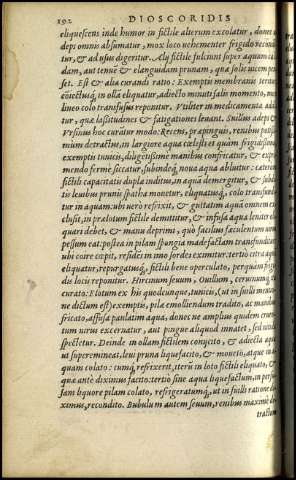 192 DIOSCORIDIS
eliquescens inde humor in fictile alterum excolatur, donec
depi omnis absumatur, mox loco uehementer frigido recondi
tur, & ad usus digeritur. Aly fictile subiunt super aquam ca
dam, aut tenuē & elanguidam prunam, qua solis uicem
set. Est & alia curandi ratio. Exemptis membranis
cōiectusq́, in ollā eliquatur, adiecto minuti salis momento, mox
lineo colo transfusus reponitur. Vtiliter in medicamenta addi
tur, quæ lassitudines & fatigationes leuant. Suillus adeps &
Vrsinus hoc curātur modo: Recens, præpinguis, renibus
mum detractus, in largiore aqua cœlesti et quàm frigidissima
exemptis tunicis, diligētissimè manibus confricatur, & expri
mendo fermè siccatur, subinde q́ noua aqua abluitur: cæterum
fictili capacitatis dupla inditur, in aquā demergitur, & subdi
tis leuibus prunis spatha monetur. eliquatusq́, colo transfundi
tur in aquam: ubi uerò refrixit, & guttatim aquā omnem
elusit, in prælotum fictile demittitur, & infusa aqua lenter
quari debet, & manu deprimi, quo facilius faculentum
pessum eat: postea in pilam spongia madefactam transfunditur:
ubi coire cœpit, residēs in imo sordes eximitur. tertiò citra aquā
eliquatur, repurgatusq́, fictili bene operculato, perquàm frigi
dis locis reponitur. Hircinum seuum, Ouillum, ceruinumq́
curato: Elotum ex his quodcunque, tunicis, (ut in suillis
ne dictum est) exemptis, pila emolliendum tradito, ac manibus
fricato, affusa paulatim aqua, donec ne amplius quidem cruen
tum uirus excernatur, aut pingue aliquod innatet, sed nitidum
spectetur. Deinde in ollam fictilem conycito, & adiecta aqua
ut superemineat, leui pruna liquefacito, & moueto, atque in
quam colato: cumq́ refrixerit, iterū in loto fictili eliquato, &
quæ antè diximus facito: tertiò sine aqua liquefactum, in
sam liquore pilam colato, refrigeratumq́, ut in suilli ratione di
ximus, recondito. Bubulum autem seuum, renibus maximè de
tractum